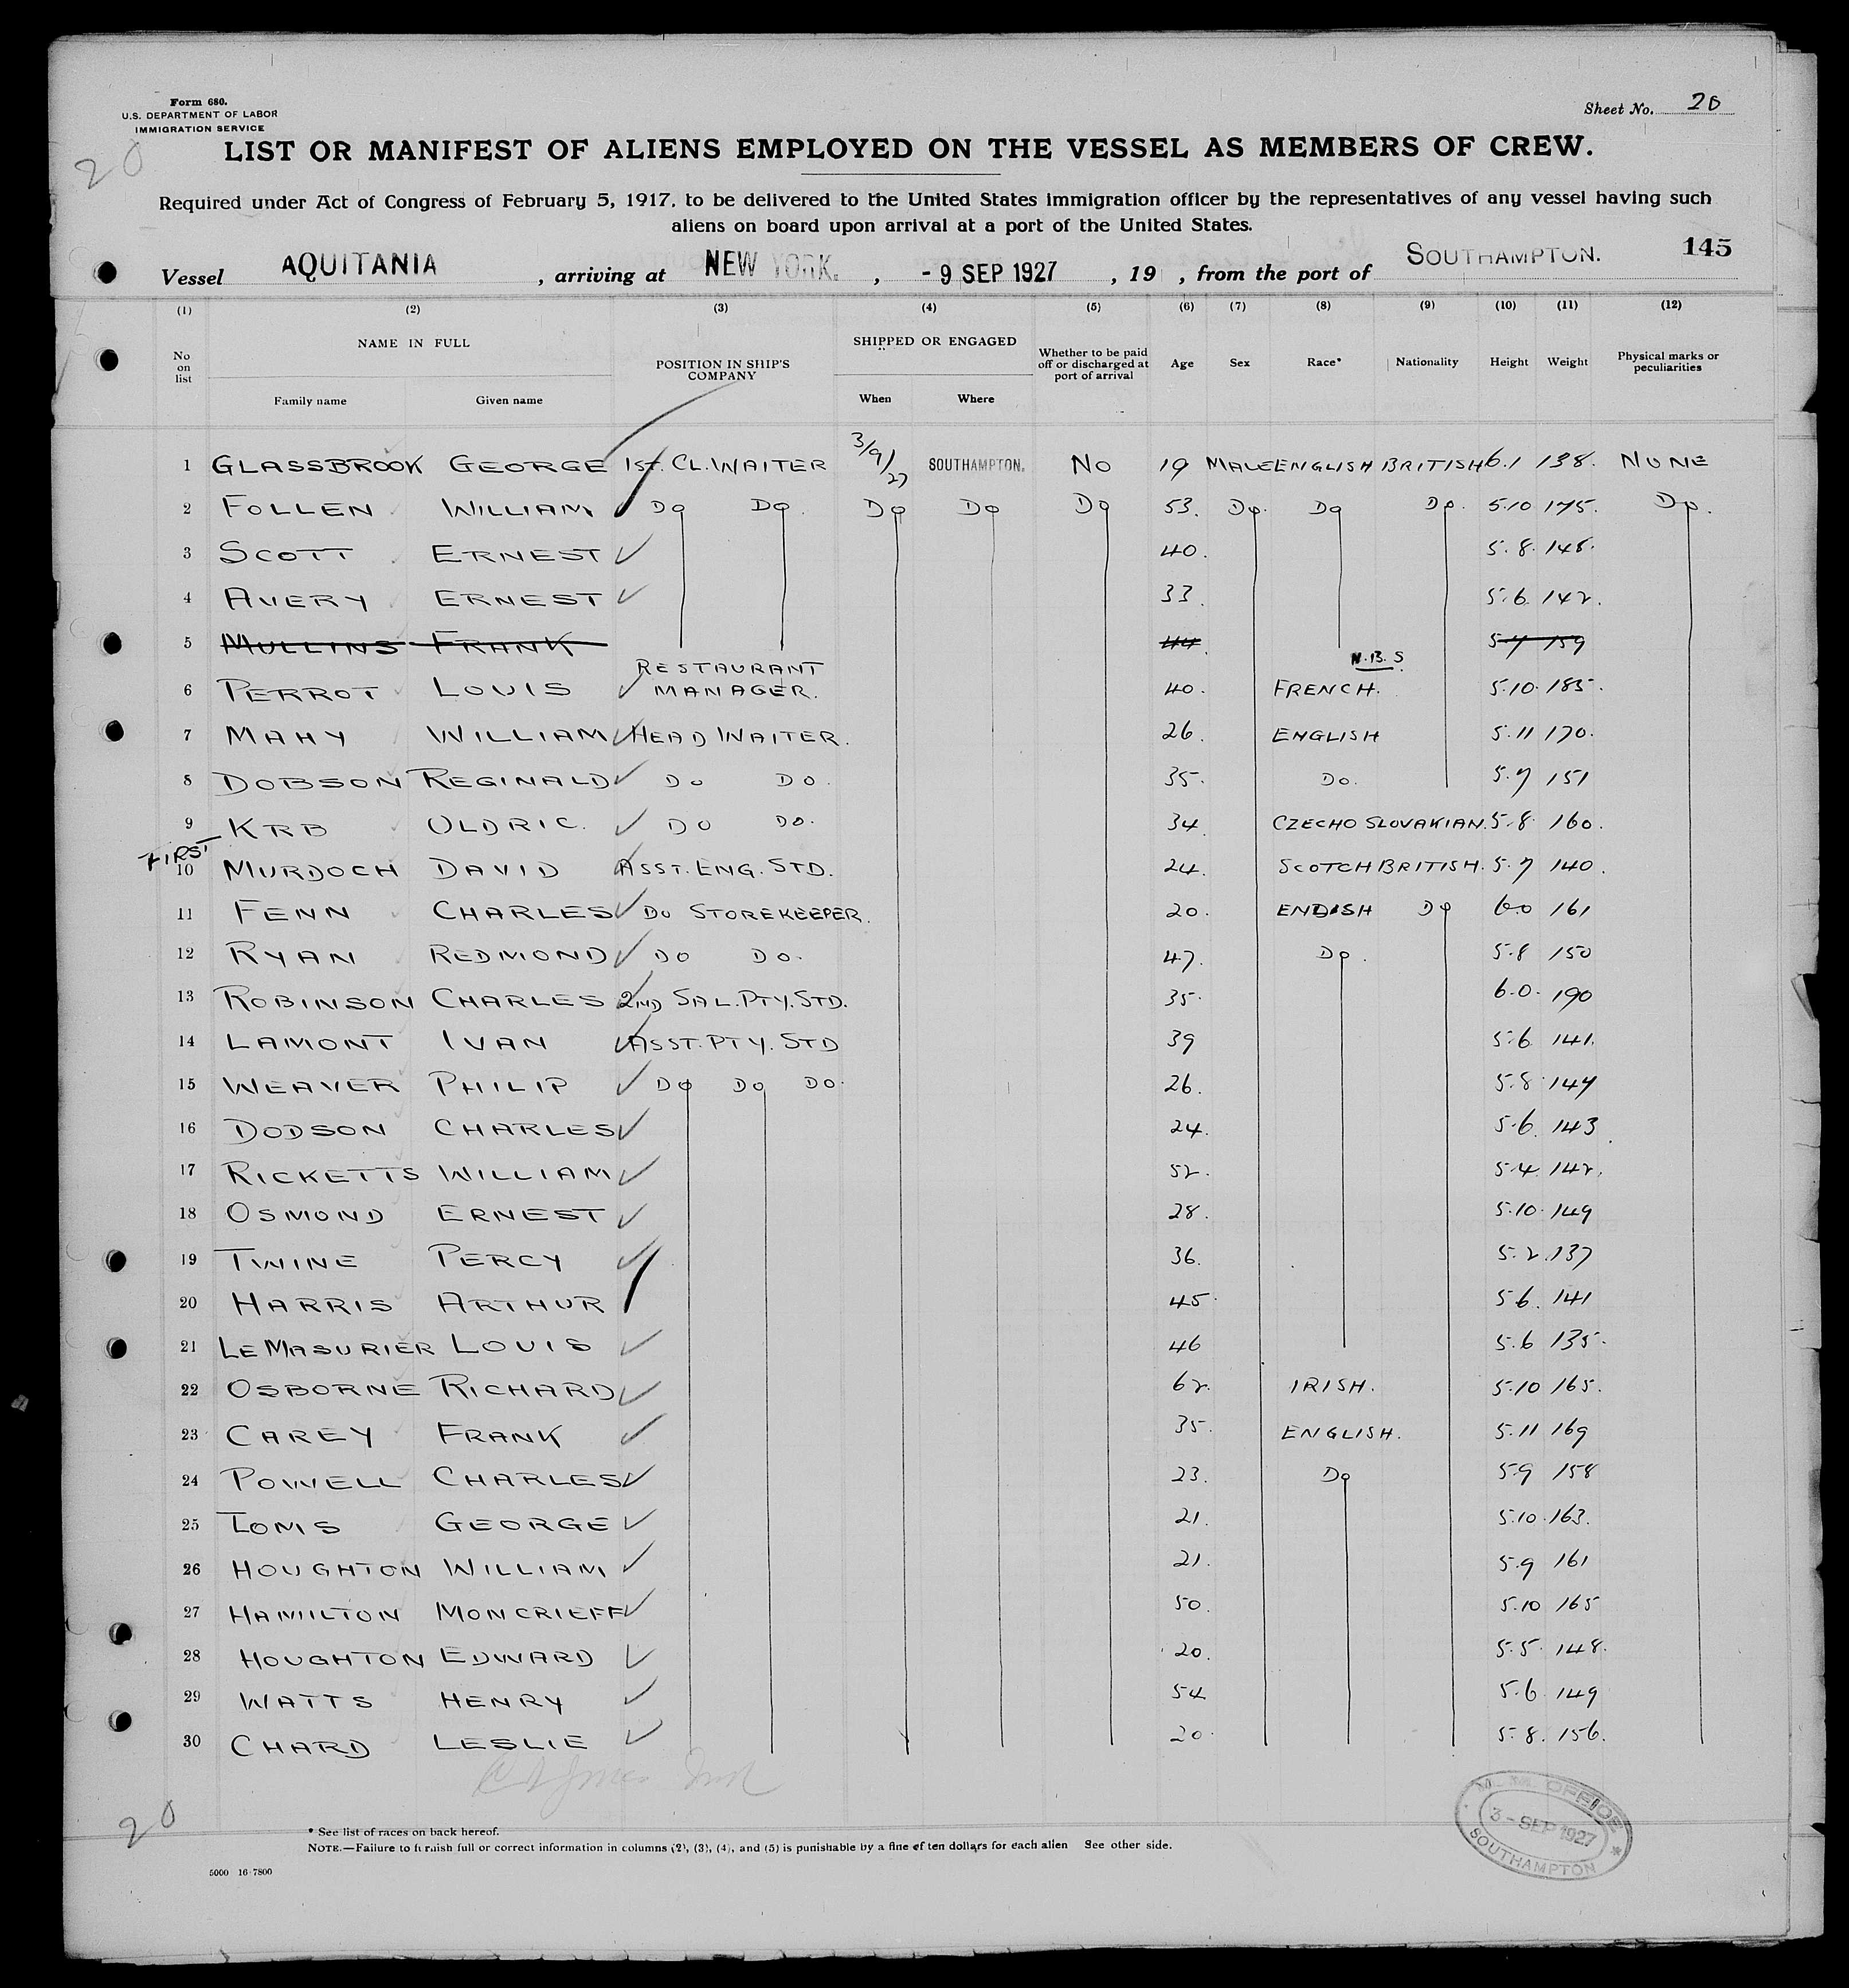 Form 680.
U.S. DEPARTMENT OF LABOR
IMMIGRATION SERVICE
Sheet No. 20
20
LIST OR MANIFEST OF ALIENS EMPLOYED ON THE VESSEL AS MEMBERS OF CREW.
Required under Act of Congress of February 5, 1917, to be delivered to the United States immigration officer by the representatives of any vessel having such
aliens on board upon arrival at a port of the United States.
145
Vessel AQUITANIA , arriving at NEW YORK. , - 9 SEP 1927 , 19 , from the port of SOUTHAMPTON.
(1) (2) (3) (4) (5) (6) (7) (8) (9) (10) (11) (12)
No on list NAME IN FULL Family name Given name POSITION IN SHIP'S COMPANY SHIPPED OR ENGAGED When Where Whether to be paid off or discharged at port of arrival Age Sex Race* Nationality Height Weight Physical marks or peculiarities
1 GLASSBROOK GEORGE 1st. CL. WAITER 3/9/27 SOUTHAMPTON. NO 19 MALE ENGLISH BRITISH 6.1 138. NONE
2 FOLLEN WILLIAM DO DO. DO DO DO 53. DO. DO DO. 5.10 175. DO.
3 SCOTT ERNEST 40. 5.8. 148.
4 AVERY ERNEST 33. 5.6. 142.
5 MULLINS FRANK 44. 5.7 159
N.B. S
6 PERROT LOUIS RESTAURANT MANAGER. 40. FRENCH. 5.10. 185.
7 MAHY WILLIAM HEAD WAITER. 26. ENGLISH 5.11 170.
8 DOBSON REGINALD DO DO. 35. DO. 5.7 151
9 KRB OLDRIC. DO DO. 34 CZECHO SLOVAKIAN. 5.8. 160.
FIRST
10 MURDOCH DAVID ASST. ENG. STD. 24. SCOTCH BRITISH. 5.7 140.
11 FENN CHARLES DO STOREKEEPER. 20. ENDISH DO 6.0 161
12 RYAN REDMOND DO DO. 47. DO. 5.8 150
13 ROBINSON CHARLES 2ND SAL. PTY. STD. 35. 6.0. 190
14 LAMONT IVAN ASST. PTY. STD 39 5.6 141.
15 WEAVER PHILIP DO DO DO. 26. 5.8 147
16 DODSON CHARLES 24. 5.6. 143
17 RICKETTS WILLIAM 52. 5.4. 142.
18 OSMOND ERNEST 28. 5.10. 149
19 TWINE PERCY 36. 5.2. 137
20 HARRIS ARTHUR 45. 5.6. 141
21 LE MASURIER LOUIS 46 5.6 135.
22 OSBORNE RICHARD 62. IRISH. 5.10 165.
23 CAREY FRANK 35. ENGLISH. 5.11 169
24 POWELL CHARLES 23. DO 5.9 158
25 TOMS GEORGE 21. 5.10. 163.
26 HOUGHTON WILLIAM 21. 5.9 161
27 HAMILTON MONCRIEFF 50. 5.10 165
28 HOUGHTON EDWARD 20. 5.5. 148.
29 WATTS HENRY 54 5.6. 149
30 CHARD LESLIE 20. 5.8. 156.
20
* See list of races on back hereof.
NOTE.—Failure to furnish full or correct information in columns (2), (3), (4), and (5) is punishable by a fine of ten dollars for each alien See other side.
5000 16-7800
M. M. OFFICE
3 - SEP 1927
SOUTHAMPTON